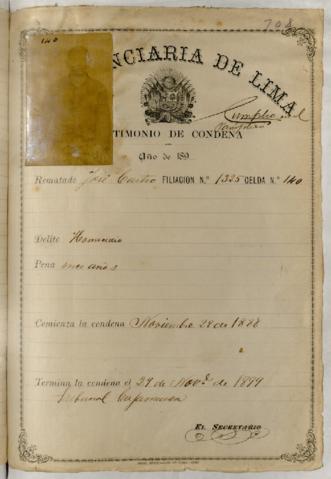 708
140
NCIARIA DE LIMA
Cumplio el
TIMONIO DE CONDENA
Año de 189
Rematado José Castro FILIACIÓN N.º 1325 CELDA N.º 140
Delito Homicidio
Pena once años
Comienza la condena Noviembre 29 de 1888
Termina la condena el 29 de Nov.e de 1899
Tribunal Cajamarca
EL SECRETARIO